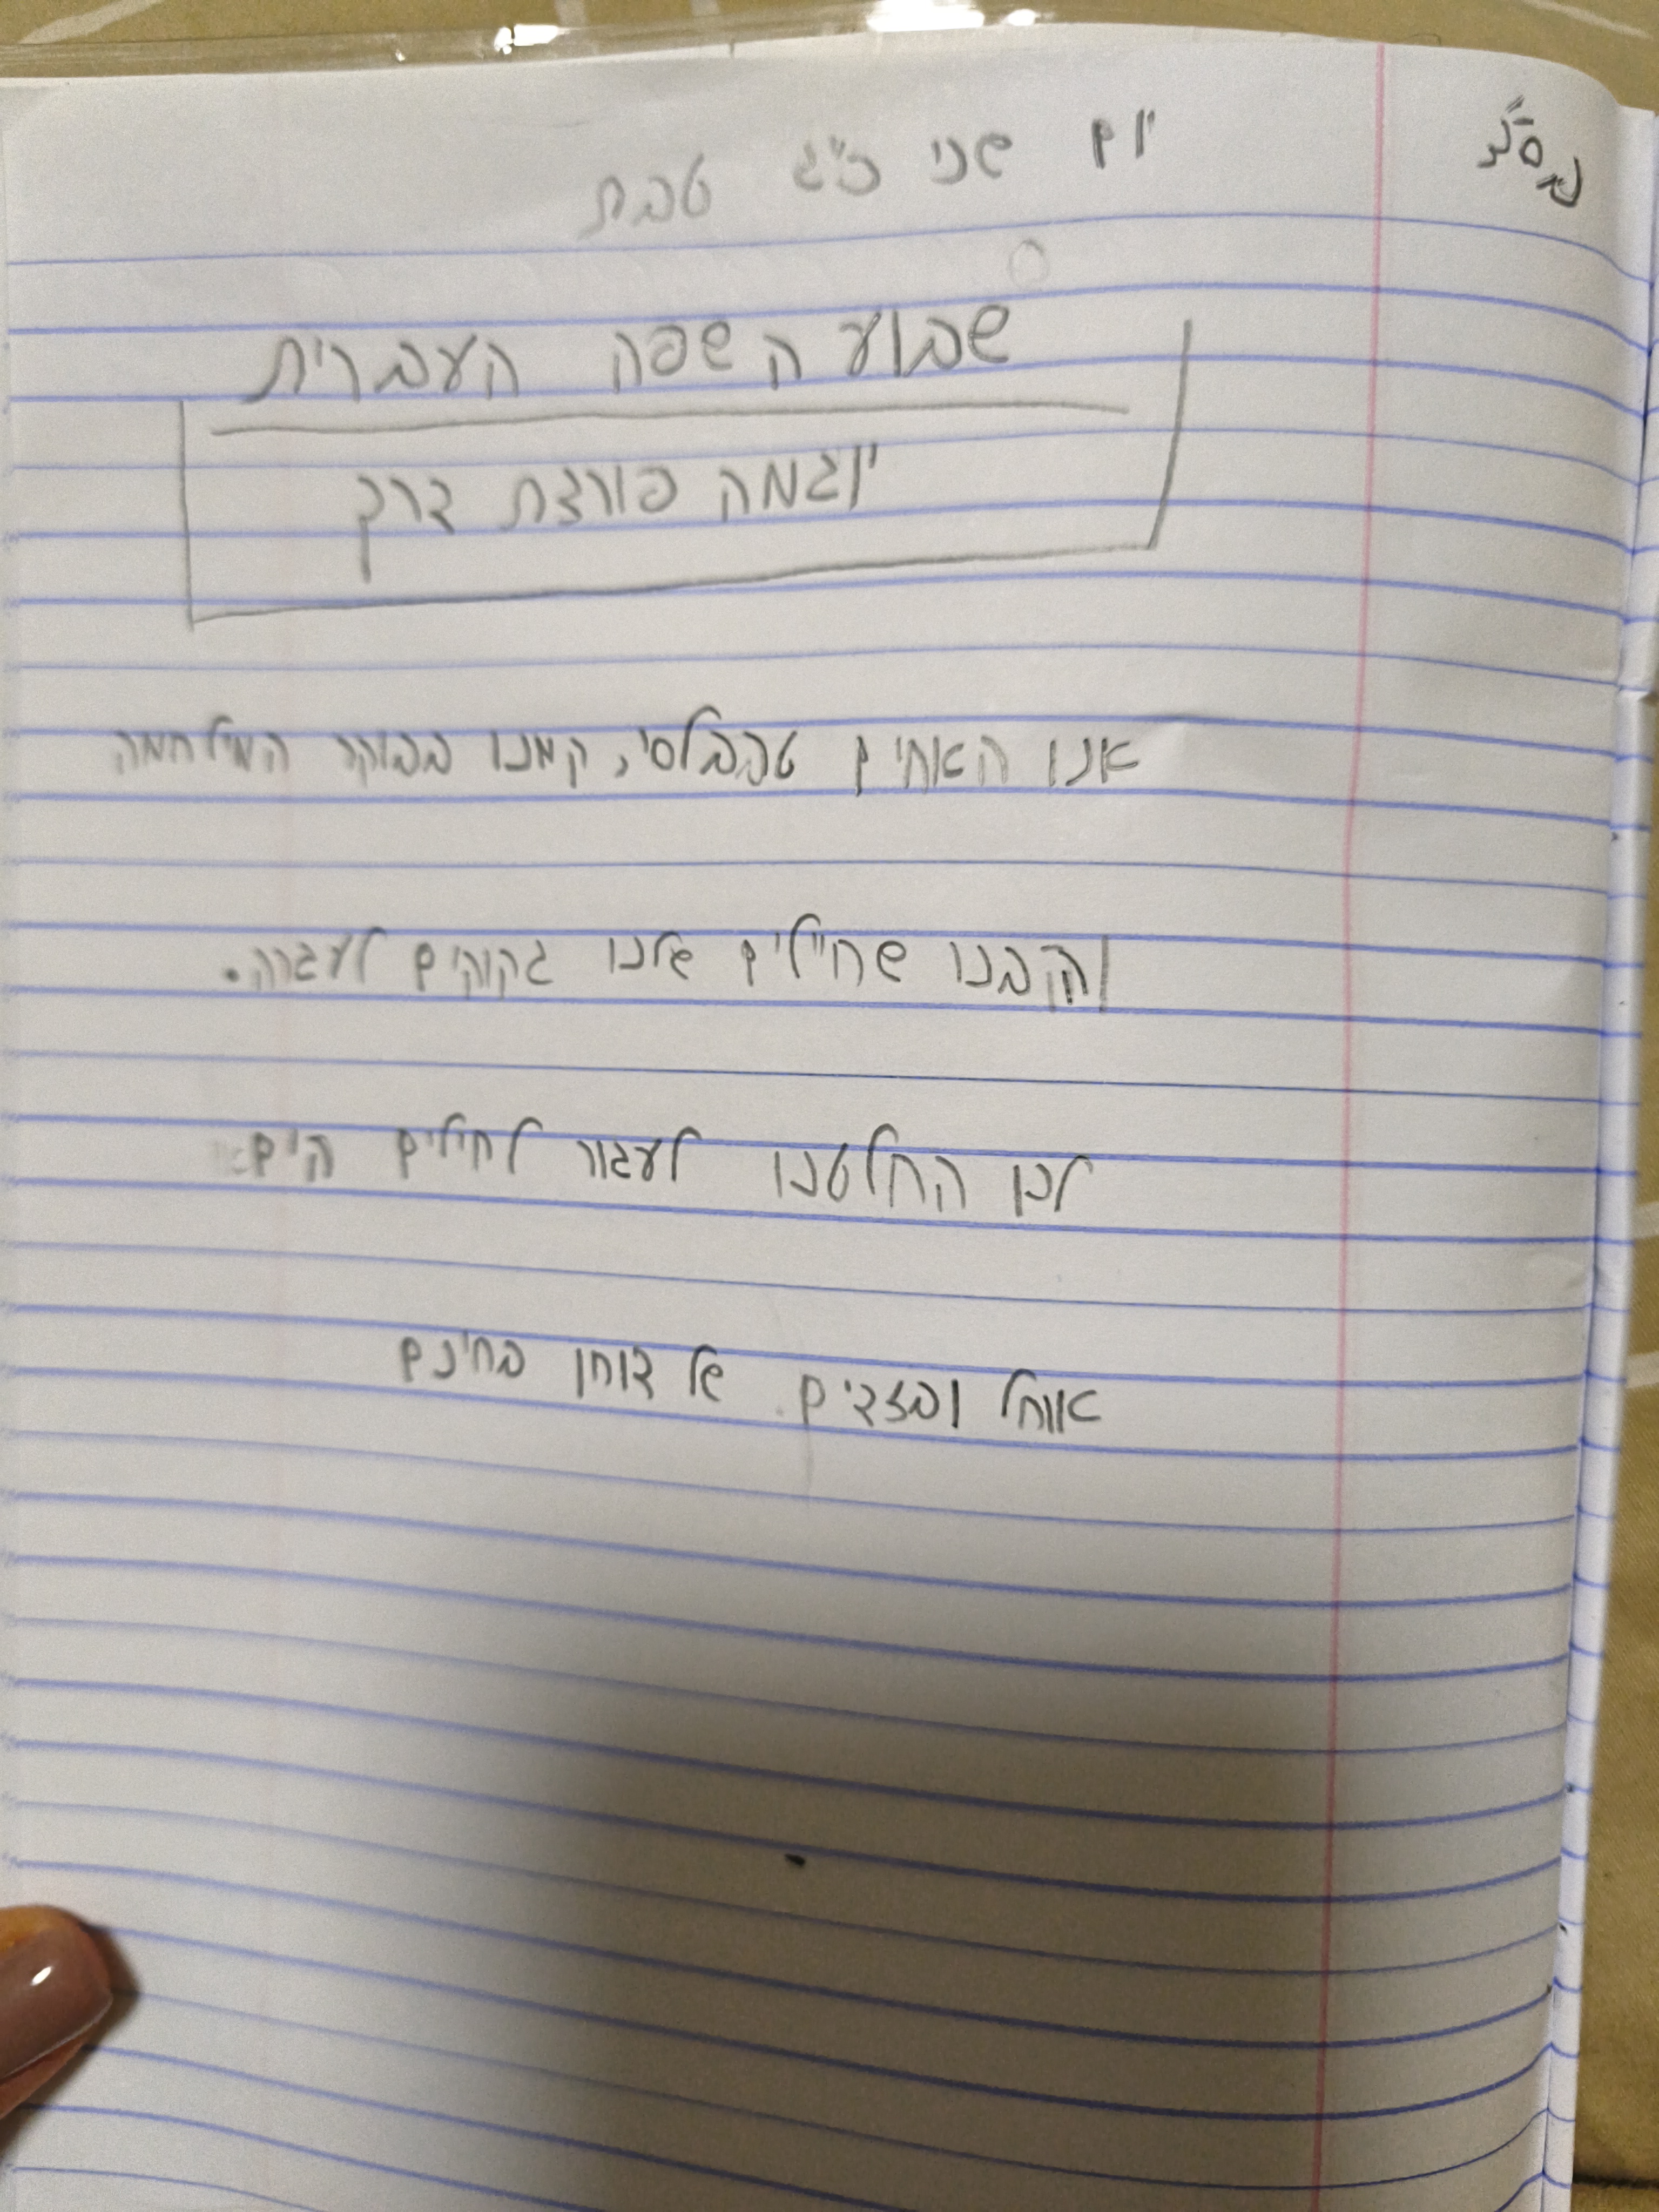 בס"ד
יום שני כ"ג טבת
שבוע השפה העברית
יוזמה פורצת דרך
אנו האחים טבבלסי, קמנו בבוקר המילחמה
והבנו שחיילים שלנו זקוקים לעזרה.
לכן החלטנו לעזור לחילים
אוהל ובגדים של בחינם